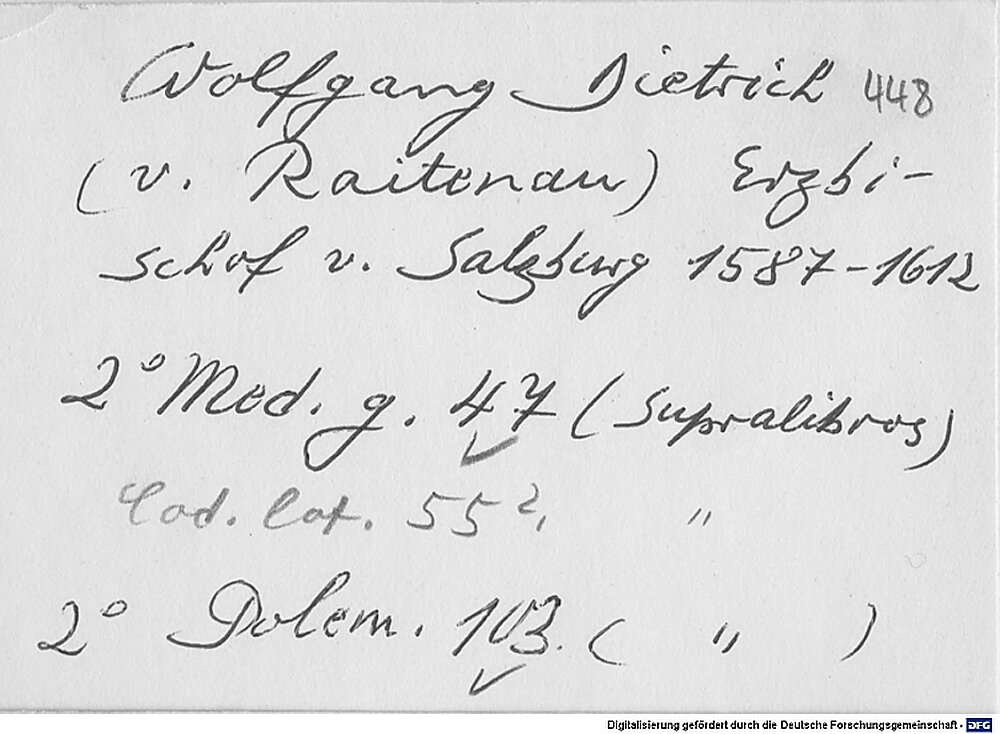 Wolfgang Dietrich 448
(v. Raitenau) Erzbi-
schof v. Salzburg 1587-1612
2° Med. g. 47 (Supralibros)
Cod. lat. 55², "
2° Polem. 103. ( " )
Digitalisierung gefördert durch die Deutsche Forschungsgemeinschaft - DFG